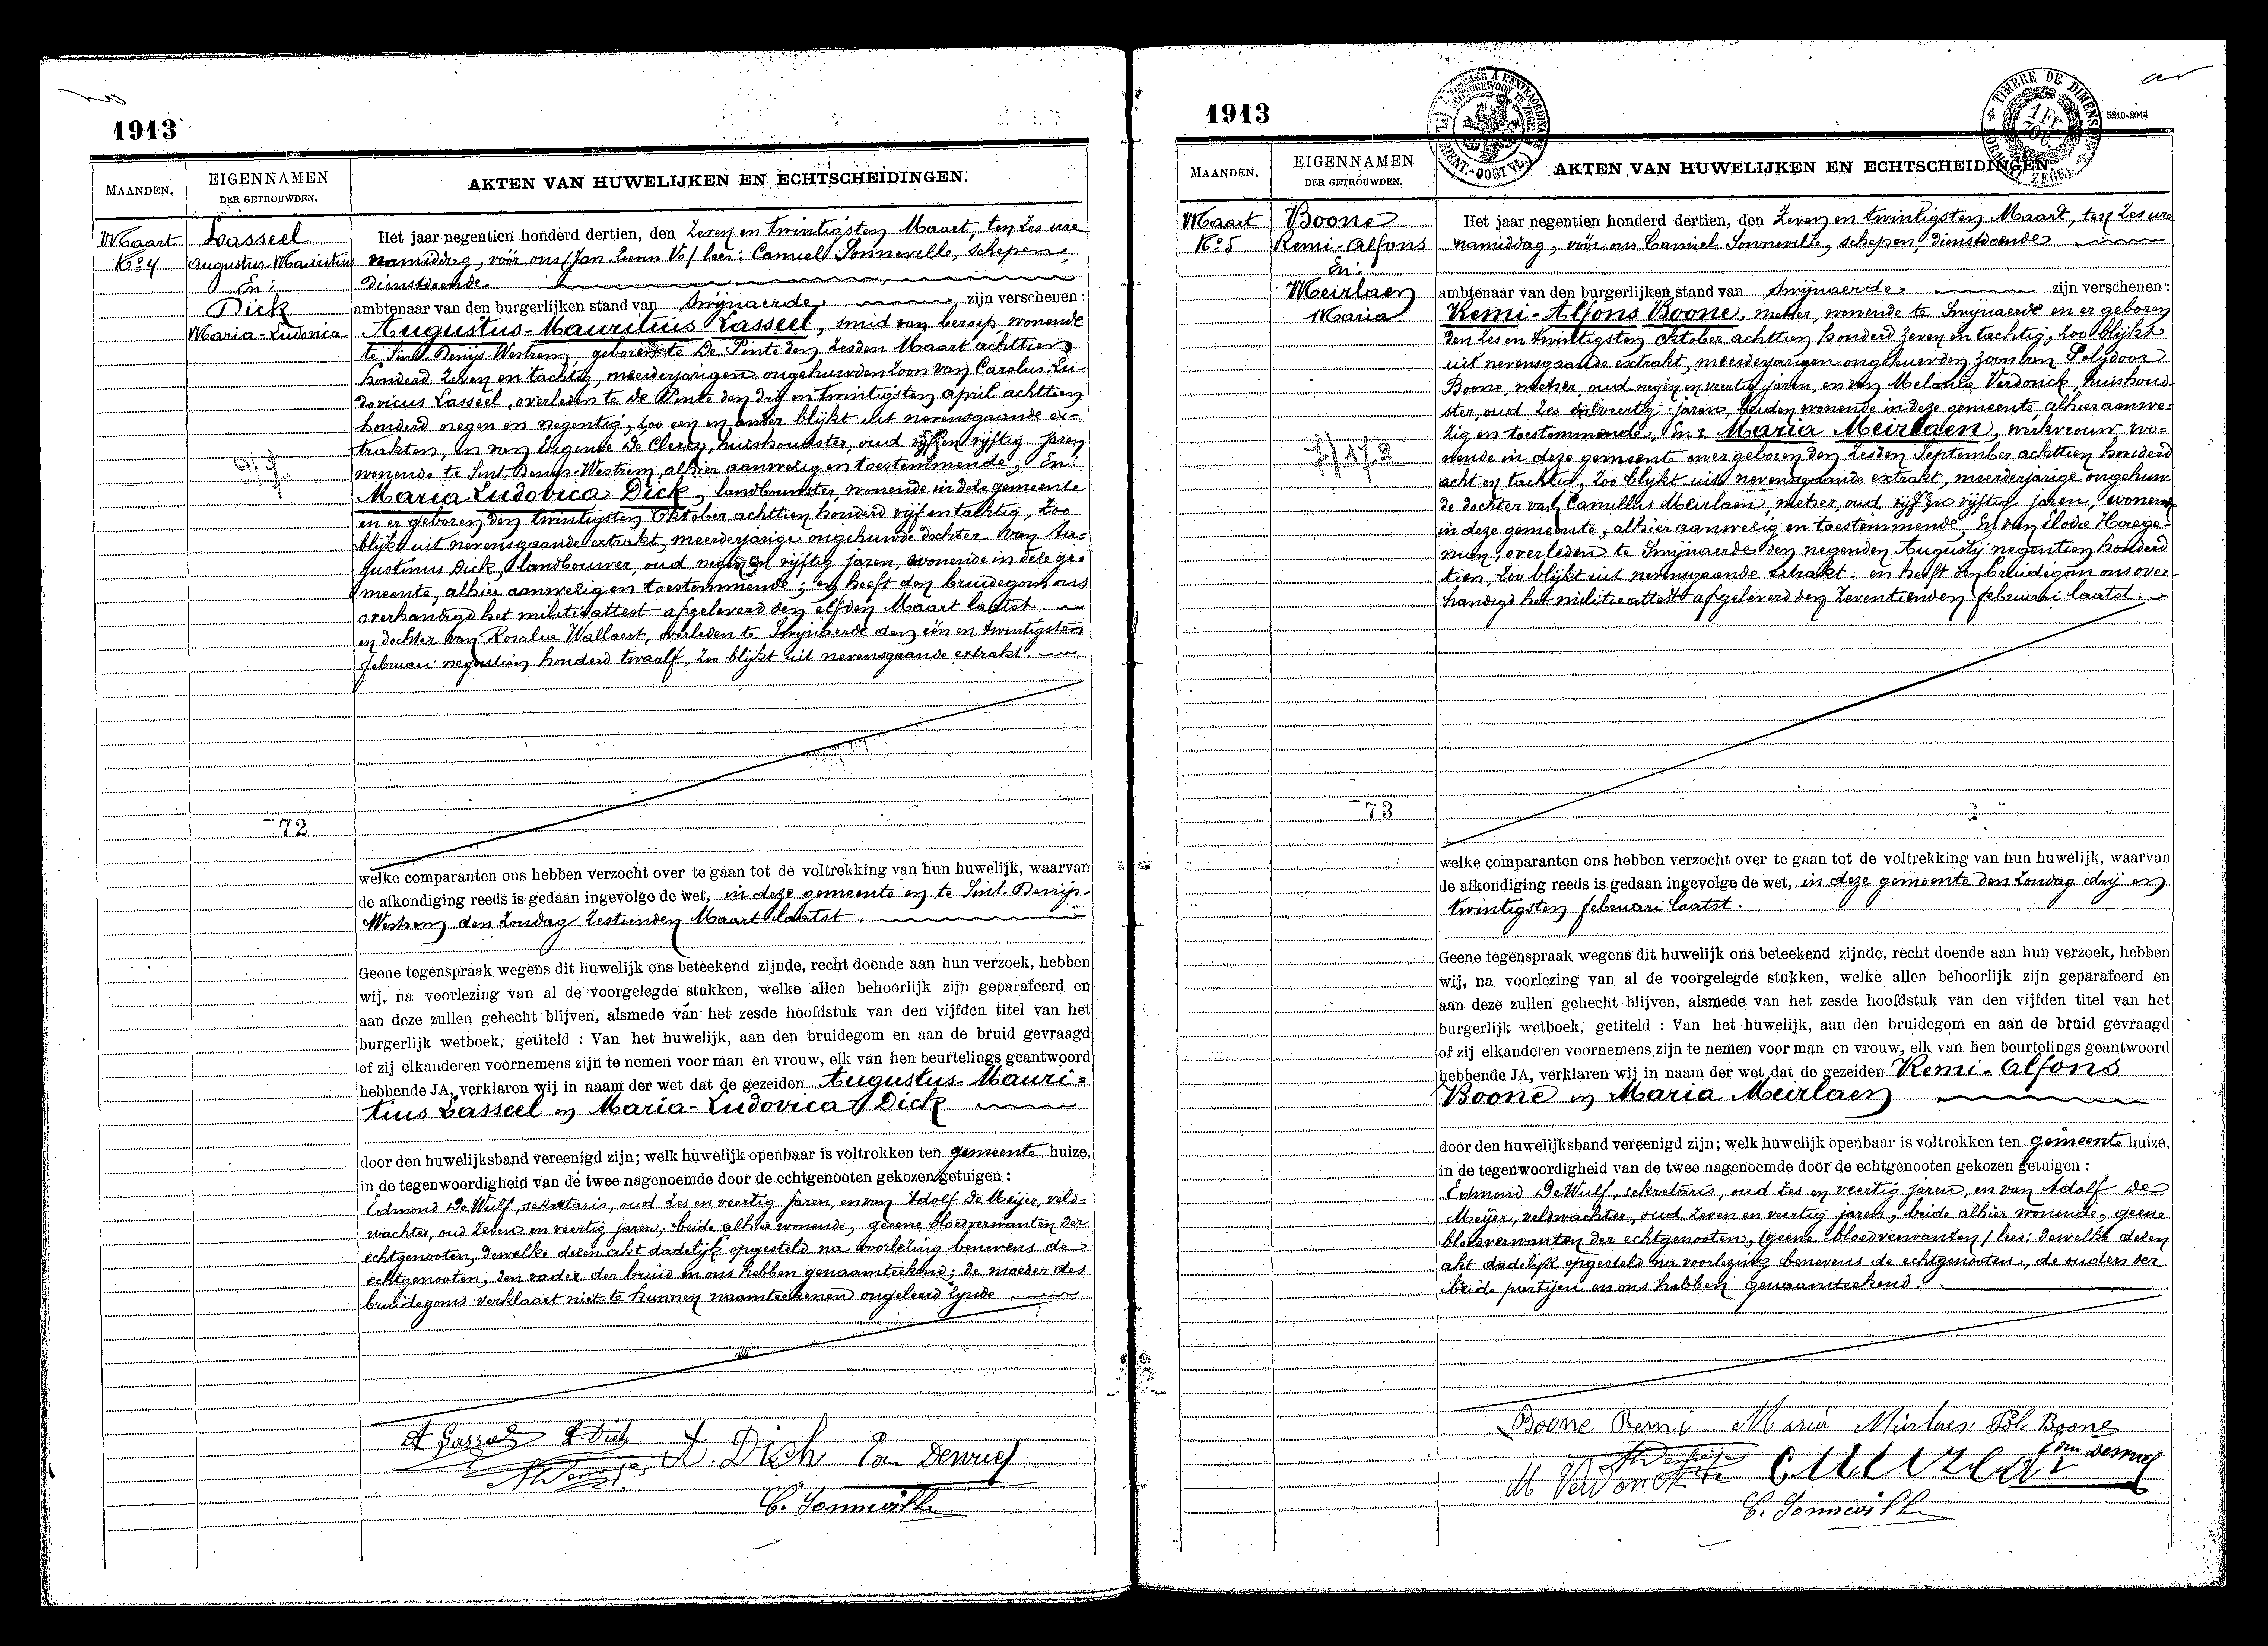 1913
MAANDEN.
EIGENNAMEN
DER GETROUWDEN.
AKTEN VAN HUWELIJKEN EN ECHTSCHEIDINGEN.
Maart
No 4
Lasseel
Augustus-Mauritius
En:
Dick
Maria-Ludovica
72
Het jaar negentien honderd dertien, den Zeven en twintigsten Maart, ten zes ure
namiddag, vóór ons (Jan Henn Vo/ lees: Camiel Sonneville, schepen,
dienstdoende
ambtenaar van den burgerlijken stand van Swijnaerde, zijn verschenen:
Augustus-Mauritius Lasseel, smid van beroep wonende
te Sint Denijs-Westrem, geboren te De Pinte den zesden Maart achttien
honderd zeven en tachtig, meerderjarigen ongehuwden zoon van Carolus-Lu-
dovicus Lasseel, overleden te De Pinte den drij en twintigsten april achttien
honderd negen en negentig, zoo een en ander blijkt uit nevensgaande ex-
trakten, en van Eugenie De Clercq, huishoudster, oud vijf en vijftig jaren
wonende te Sint-Denijs-Westrem, alhier aanwezig en toestemmende, En:
Maria-Ludovica Dick, landbouwster, wonende in deze gemeente
en er geboren den twintigsten Oktober achttien honderd vijf en tachtig, zoo
blijkt uit nevensgaande extrakt, meerderjarige ongehuwde dochter van Au-
gustinus Dick, landbouwer, oud negen en vijftig jaren, wonende in deze ge-
meente, alhier aanwezig en toestemmende; en heeft den bruidegom ons
overhandigd het militieattest afgeleverd den elfden Maart laatst.
en dochter van Rosalia Wallaert, overleden te Swijnaerde den één en twintigsten
februari negentien honderd twaalf, zoo blijkt uit nevensgaande extrakt.
welke comparanten ons hebben verzocht over te gaan tot de voltrekking van hun huwelijk, waarvan
de afkondiging reeds is gedaan ingevolge de wet, in deze gemeente en te Sint-Denijs-
Westrem den Zondag zestienden Maart laatst.
Geene tegenspraak wegens dit huwelijk ons beteekend zijnde, recht doende aan hun verzoek, hebben
wij, na voorlezing van al de voorgelegde stukken, welke allen behoorlijk zijn geparafeerd en
aan deze zullen gehecht blijven, alsmede van het zesde hoofdstuk van den vijfden titel van het
burgerlijk wetboek, getiteld : Van het huwelijk, aan den bruidegom en aan de bruid gevraagd
of zij elkanderen voornemens zijn te nemen voor man en vrouw, elk van hen beurtelings geantwoord
hebbende JA, verklaren wij in naam der wet dat de gezeiden Augustus-Mauri-
tius Lasseel en Maria-Ludovica Dick
door den huwelijksband vereenigd zijn; welk huwelijk openbaar is voltrokken ten gemeente huize,
in de tegenwoordigheid van de twee nagenoemde door de echtgenooten gekozen getuigen :
Edmond De Wulf, sekretaris, oud zes en veertig jaren, en van Adolf De Meijer, veld-
wachter, oud zeven en veertig jaren, beide alhier wonende, geene bloedverwanten der
echtgenooten, dewelke dezen akt dadelijk opgesteld na voorlezing benevens de
echtgenooten, den vader der bruid en ons hebben genaamteekend; de moeder des
bruidegoms verklaart niet te kunnen naamteekenen ongeleerd zijnde
A. Dick
C. Sonneville
1913
5240-2044
MAANDEN.
EIGENNAMEN
DER GETROUWDEN.
AKTEN VAN HUWELIJKEN EN ECHTSCHEIDINGEN.
Maart
No 5
Boone
Remi-Alfons
En:
Meirlaen
Maria
73
Het jaar negentien honderd dertien, den Zeven en twintigsten Maart, ten zes ure
namiddag, vóór ons Camiel Sonneville, schepen, dienstdoende
ambtenaar van den burgerlijken stand van Swijnaerde zijn verschenen:
Remi-Alfons Boone, metser, wonende te Swijnaerde en er geboren
den zes en twintigsten Oktober achttien honderd zeven en tachtig, zoo blijkt
uit nevensgaande extrakt, meerderjarigen ongehuwden zoon van Polydoor
Boone, metser, oud negen en veertig jaren, en van Melania Verdonck, huishoud-
ster, oud zes en veertig jaren, beiden wonende in deze gemeente, alhier aanwe-
zig en toestemmende, En: Maria Meirlaen, werkvrouw wo-
nende in deze gemeente en er geboren den zesden September achttien honderd
acht en tachtig, zoo blijkt uit nevensgaande extrakt, meerderjarige ongehuw-
de dochter van Camillus Meirlaen, metser, oud vijf en vijftig jaren, wonende
in deze gemeente, alhier aanwezig en toestemmende, en van Elodie Haege-
man, overleden te Swijnaerde den negenden Augustij negentien honderd
tien, zoo blijkt uit nevensgaande extrakt. en heeft den bruidegom ons over-
handigd het militieattest afgeleverd den zeventienden februari laatst.
welke comparanten ons hebben verzocht over te gaan tot de voltrekking van hun huwelijk, waarvan
de afkondiging reeds is gedaan ingevolge de wet, in deze gemeente den Zondag drij en
twintigsten februari laatst.
Geene tegenspraak wegens dit huwelijk ons beteekend zijnde, recht doende aan hun verzoek, hebben
wij, na voorlezing van al de voorgelegde stukken, welke allen behoorlijk zijn geparafeerd en
aan deze zullen gehecht blijven, alsmede van het zesde hoofdstuk van den vijfden titel van het
burgerlijk wetboek, getiteld : Van het huwelijk, aan den bruidegom en aan de bruid gevraagd
of zij elkanderen voornemens zijn te nemen voor man en vrouw, elk van hen beurtelings geantwoord
hebbende JA, verklaren wij in naam der wet dat de gezeiden Remi-Alfons
Boone en Maria Meirlaen
door den huwelijksband vereenigd zijn; welk huwelijk openbaar is voltrokken ten gemeente huize,
in de tegenwoordigheid van de twee nagenoemde door de echtgenooten gekozen getuigen :
Edmond De Wulf, sekretaris, oud zes en veertig jaren, en van Adolf De
Meijer, veldwachter, oud zeven en veertig jaren, beide alhier wonende, geene
bloedverwanten der echtgenooten, (geene bloedverwanten/ lees: dewelke dezen
akt dadelijk opgesteld na voorlezing benevens de echtgenooten, de ouders der
beide partijen en ons hebben genaamteekend.
Boone Remi Maria Meirlaen Pol. Boone
M Verdonck
C. Sonneville